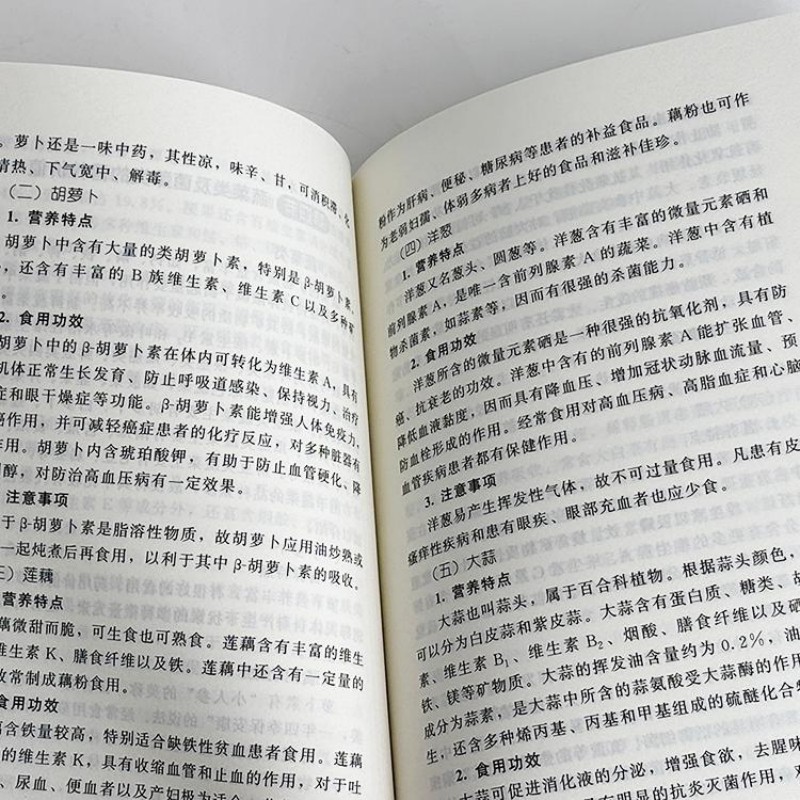 。萝卜还是一味中药，其性凉，味辛、甘，可消积滞、化
清热、下气宽中、解毒。
（二）胡萝卜
1. 营养特点
胡萝卜中含有大量的类胡萝卜素，特别是β-胡萝卜素，
，还含有丰富的 B 族维生素、维生素 C 以及多种矿
2. 食用功效
胡萝卜中的β-胡萝卜素在体内可转化为维生素 A，具有
机体正常生长发育、防止呼吸道感染、保持视力、治疗
症和眼干燥症等功能。β-胡萝卜素能增强人体免疫力，
癌作用，并可减轻癌症患者的化疗反应，对多种脏器有
作用。胡萝卜内含琥珀酸钾，有助于防止血管硬化、降
固醇，对防治高血压病有一定效果。
注意事项
于β-胡萝卜素是脂溶性物质，故胡萝卜应用油炒熟或
一起炖煮后再食用，以利于其中β-胡萝卜素的吸收。
三）莲藕
营养特点
藕微甜而脆，可生食也可熟食。莲藕含有丰富的维生
维生素 K、膳食纤维以及铁。莲藕中还含有一定量的
故常制成藕粉食用。
食用功效
含铁量较高，特别适合缺铁性贫血患者食用。莲藕
的维生素 K，具有收缩血管和止血的作用，对于吐
、尿血、便血者以及产妇极为适合
粉作为肝病、便秘、糖尿病等患者的补益食品。藕粉也可作
为老弱妇孺、体弱多病者上好的食品和滋补佳珍。
（四）洋葱
1. 营养特点
洋葱又名葱头、圆葱等。洋葱含有丰富的微量元素硒和
前列腺素 A，是唯一含前列腺素 A 的蔬菜。洋葱中含有植
物杀菌素，如蒜素等，因而有很强的杀菌能力。
2. 食用功效
洋葱所含的微量元素硒是一种很强的抗氧化剂，具有防
癌、抗衰老的功效。洋葱中含有的前列腺素 A 能扩张血管、
降低血液黏度，因而具有降血压、增加冠状动脉血流量、预
防血栓形成的作用。经常食用对高血压病、高脂血症和心脑
血管疾病患者都有保健作用。
3. 注意事项
洋葱易产生挥发性气体，故不可过量食用。凡患有皮
瘙痒性疾病和患有眼疾、眼部充血者也应少食。
（五）大蒜
1. 营养特点
大蒜也叫蒜头，属于百合科植物。根据蒜头颜色，
可以分为白皮蒜和紫皮蒜。大蒜含有蛋白质、糖类、胡
素、维生素 B₁、维生素 B₂、烟酸、膳食纤维以及硒
铁、镁等矿物质。大蒜的挥发油含量约为 0.2%，油
成分为蒜素，是大蒜中所含的蒜氨酸受大蒜酶的作用
物，还含多种烯丙基、丙基和甲基组成的硫醚化合物
2. 食用功效
大蒜可促进消化液的分泌，增强食欲，去腥味
有明显的抗炎灭菌作用，